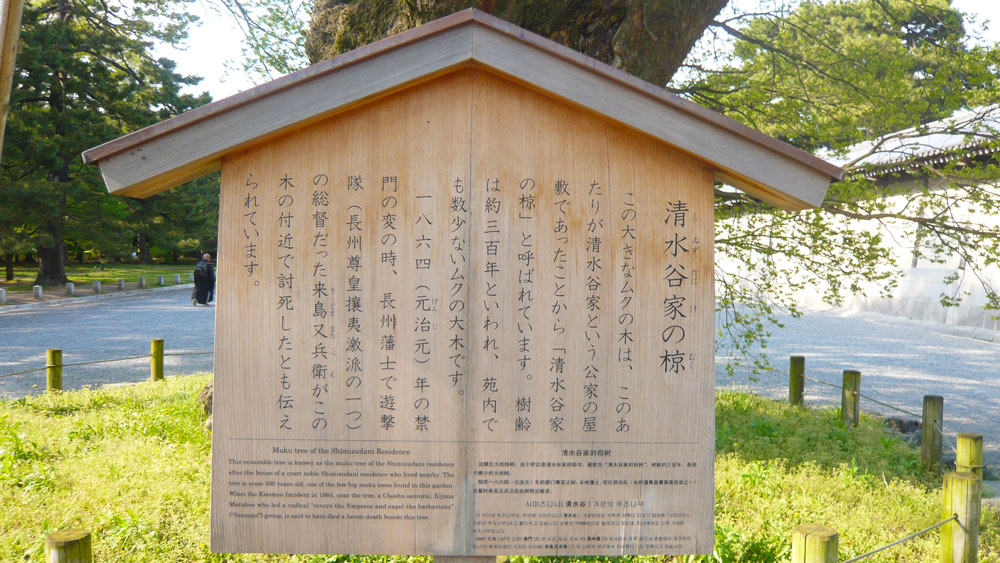 清水谷家の椋
しみずだにけ
むく
この大きなムクの木は、このあ
たりが清水谷家という公家の屋
敷であったことから「清水谷家
の椋」と呼ばれています。樹齢
は約三百年といわれ、苑内で
も数少ないムクの大木です。
一八六四(元治元)年の禁
げんじ
門の変の時、長州藩士で遊撃
隊(長州尊皇攘夷激派の一つ)
の総督だった来島又兵衛がこの
きじままたべえ
木の付近で討死したとも伝え
られています。
Muku tree of the Shimizudani Residence
This venerable tree is known as the muku tree of the Shimizudani residence
after the house of a court noble Shimizudani residence who lived nearby. The
tree is some 300 years old, one of the few big muku trees found in this garden.
When the Kinmon Incident in 1864, near the tree, a Choshu samurai, Kijima
Matabee who led a radical "revere the Emperor and expel the barbarians"
("Sonnojoi") group, is said to have died a heroic death beside this tree.
清水谷家的椋树
시미즈다니(清水谷) 가문의 푸조나무